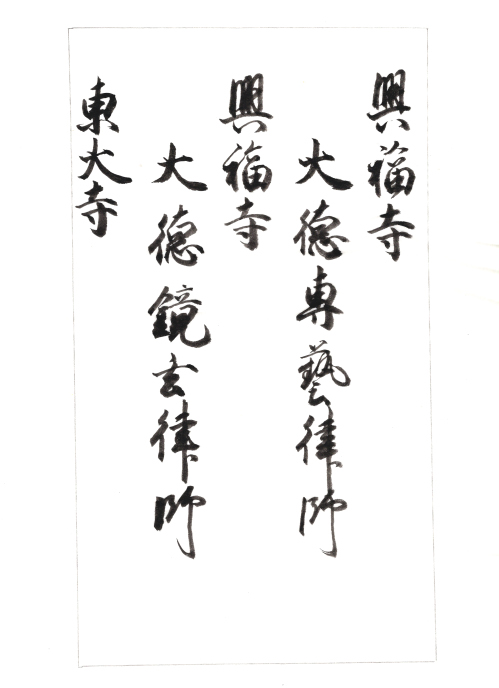 興福寺
大德専藝律師
興福寺
大德鏡玄律師
東大寺